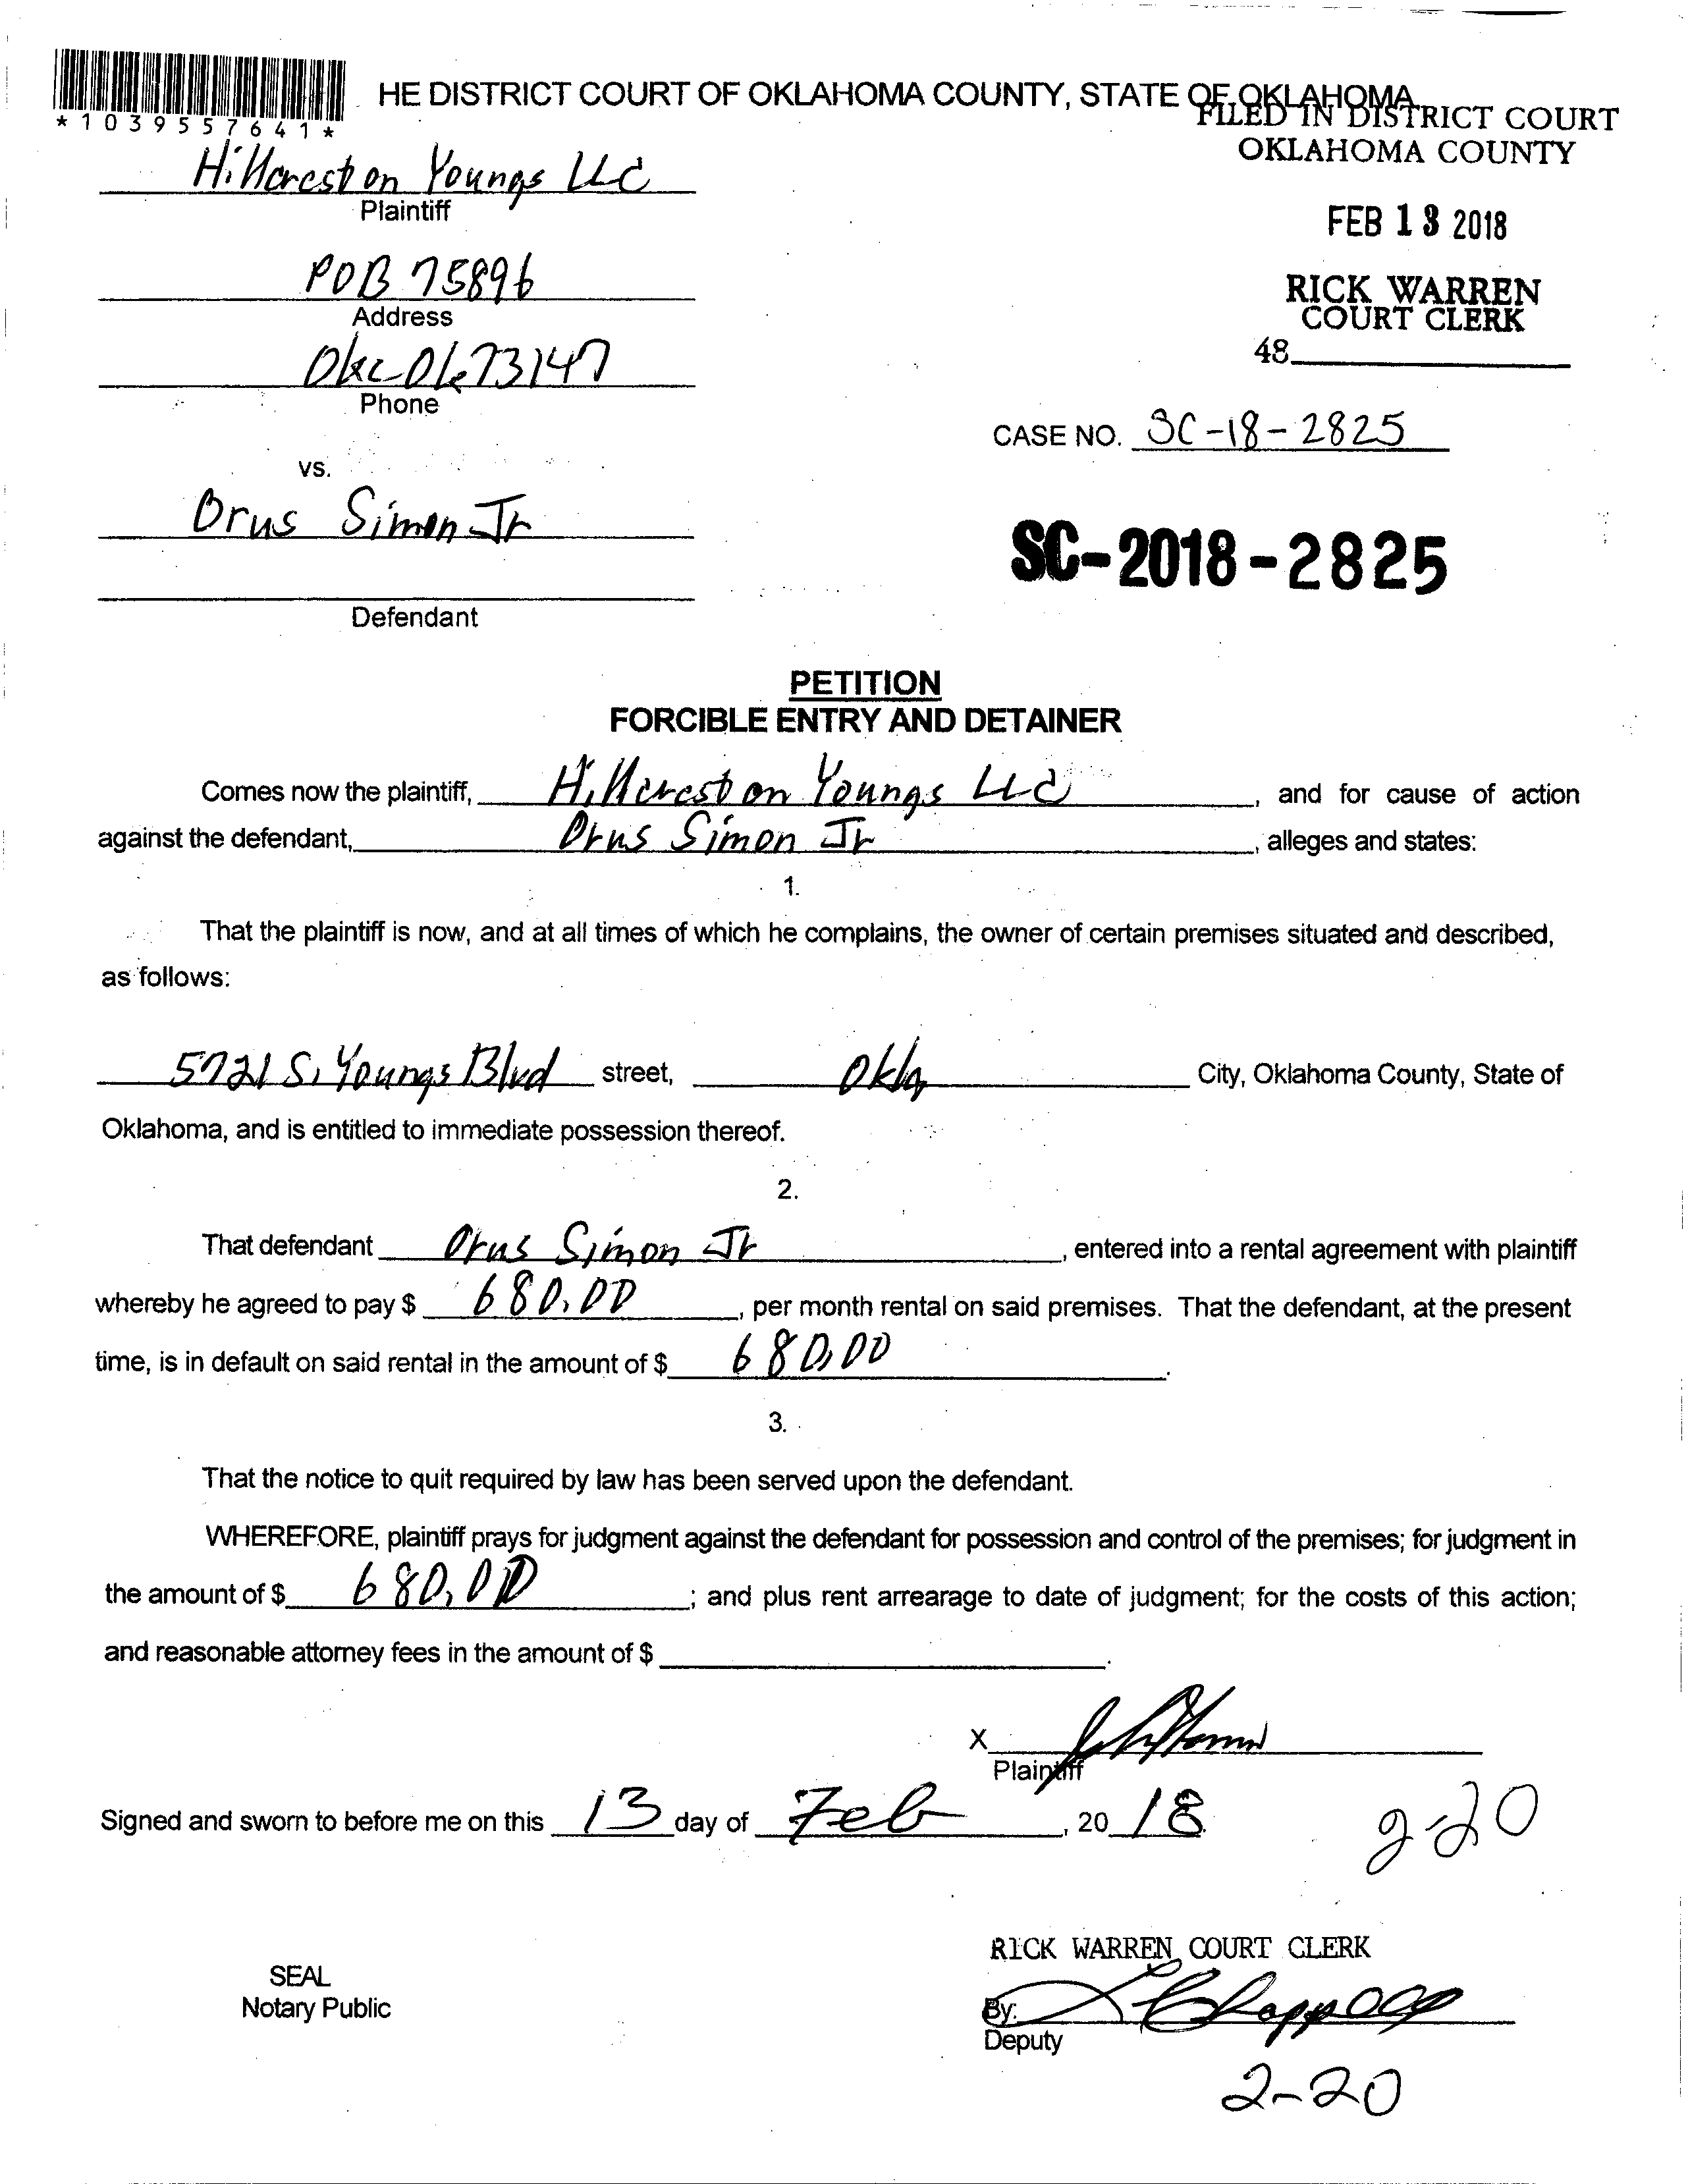 HE DISTRICT COURT OF OKLAHOMA COUNTY, STATE OF OKLAHOMA
*1039557641*
FILED IN DISTRICT COURT
OKLAHOMA COUNTY
Hillcrest on Youngs LLC
Plaintiff
FEB 13 2018
POB 75896
Address
RICK WARREN
COURT CLERK
48
Okc Ok 73147
Phone
CASE NO. SC-18-2825
vs.
Orus Simon Jr
SC-2018-2825
Defendant
PETITION
FORCIBLE ENTRY AND DETAINER
Comes now the plaintiff, Hillcrest on Youngs LLC, and for cause of action
against the defendant, Orus Simon Jr, alleges and states:
1.
That the plaintiff is now, and at all times of which he complains, the owner of certain premises situated and described,
as follows:
5721 S. Youngs Blvd street, Okla City, Oklahoma County, State of
Oklahoma, and is entitled to immediate possession thereof.
2.
That defendant Orus Simon Jr, entered into a rental agreement with plaintiff
whereby he agreed to pay $ 680.00, per month rental on said premises. That the defendant, at the present
time, is in default on said rental in the amount of $ 680.00.
3.
That the notice to quit required by law has been served upon the defendant.
WHEREFORE, plaintiff prays for judgment against the defendant for possession and control of the premises; for judgment in
the amount of $ 680.00; and plus rent arrearage to date of judgment; for the costs of this action;
and reasonable attorney fees in the amount of $ .
X
Plaintiff
Signed and sworn to before me on this 13 day of Feb, 20 18.
2-20
RICK WARREN COURT CLERK
SEAL
Notary Public
By:
Deputy
2-20